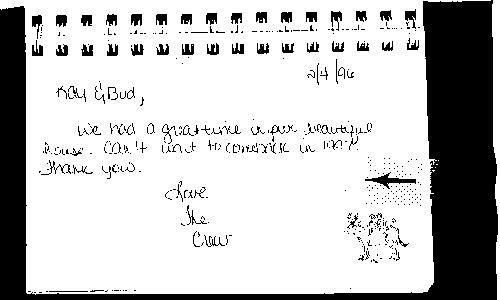 2/4/96
Kay & Bud,
We had a great time in your beautiful
house. Can't wait to come back in
Thank you.
Love
The
Crow